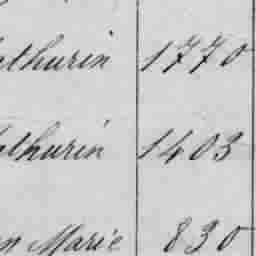 athurin 1770
athurin 1403
n Marie 830